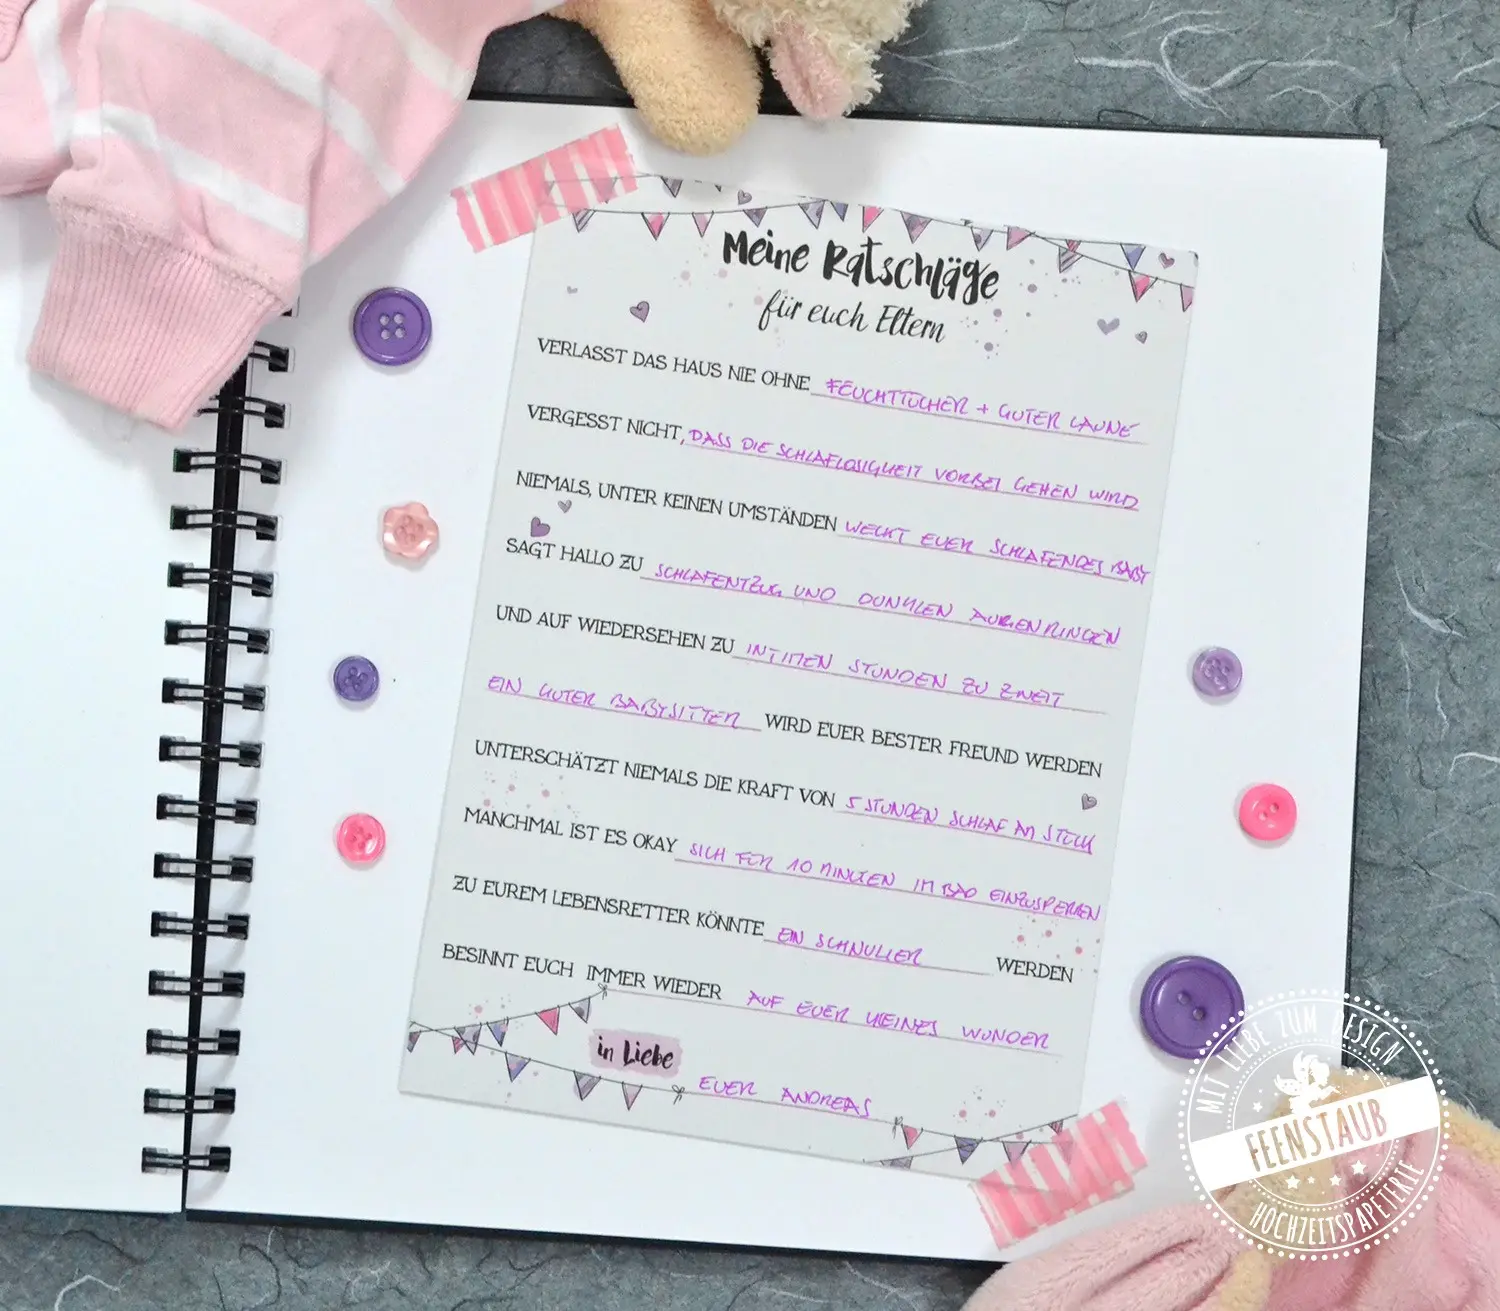 Meine Ratschläge
für euch Eltern
VERLASST DAS HAUS NIE OHNE FEUCHTTÜCHER + GUTER LAUNE
VERGESST NICHT, DASS DIE SCHLAFLOSIGKEIT VORBEI GEHEN WIRD
NIEMALS, UNTER KEINEN UMSTÄNDEN WECKT EUER SCHLAFENDES BABY
SAGT HALLO ZU SCHLAFENTZUG UND DUNKLEN AUGENRINGEN
UND AUF WIEDERSEHEN ZU INTIMEN STUNDEN ZU ZWEIT
EIN GUTER BABYSITTER WIRD EUER BESTER FREUND WERDEN
UNTERSCHÄTZT NIEMALS DIE KRAFT VON 5 STUNDEN SCHLAF AM STÜCK
MANCHMAL IST ES OKAY SICH FÜR 10 MINUTEN IM BAD EINZUSPERREN
ZU EUREM LEBENSRETTER KÖNNTE EIN SCHNULLER WERDEN
BESINNT EUCH IMMER WIEDER AUF EUER KLEINES WUNDER
in Liebe
EUER ANDREAS
MIT LIEBE ZUM DESIGN
FEENSTAUB
HOCHZEITSPAPETERIE